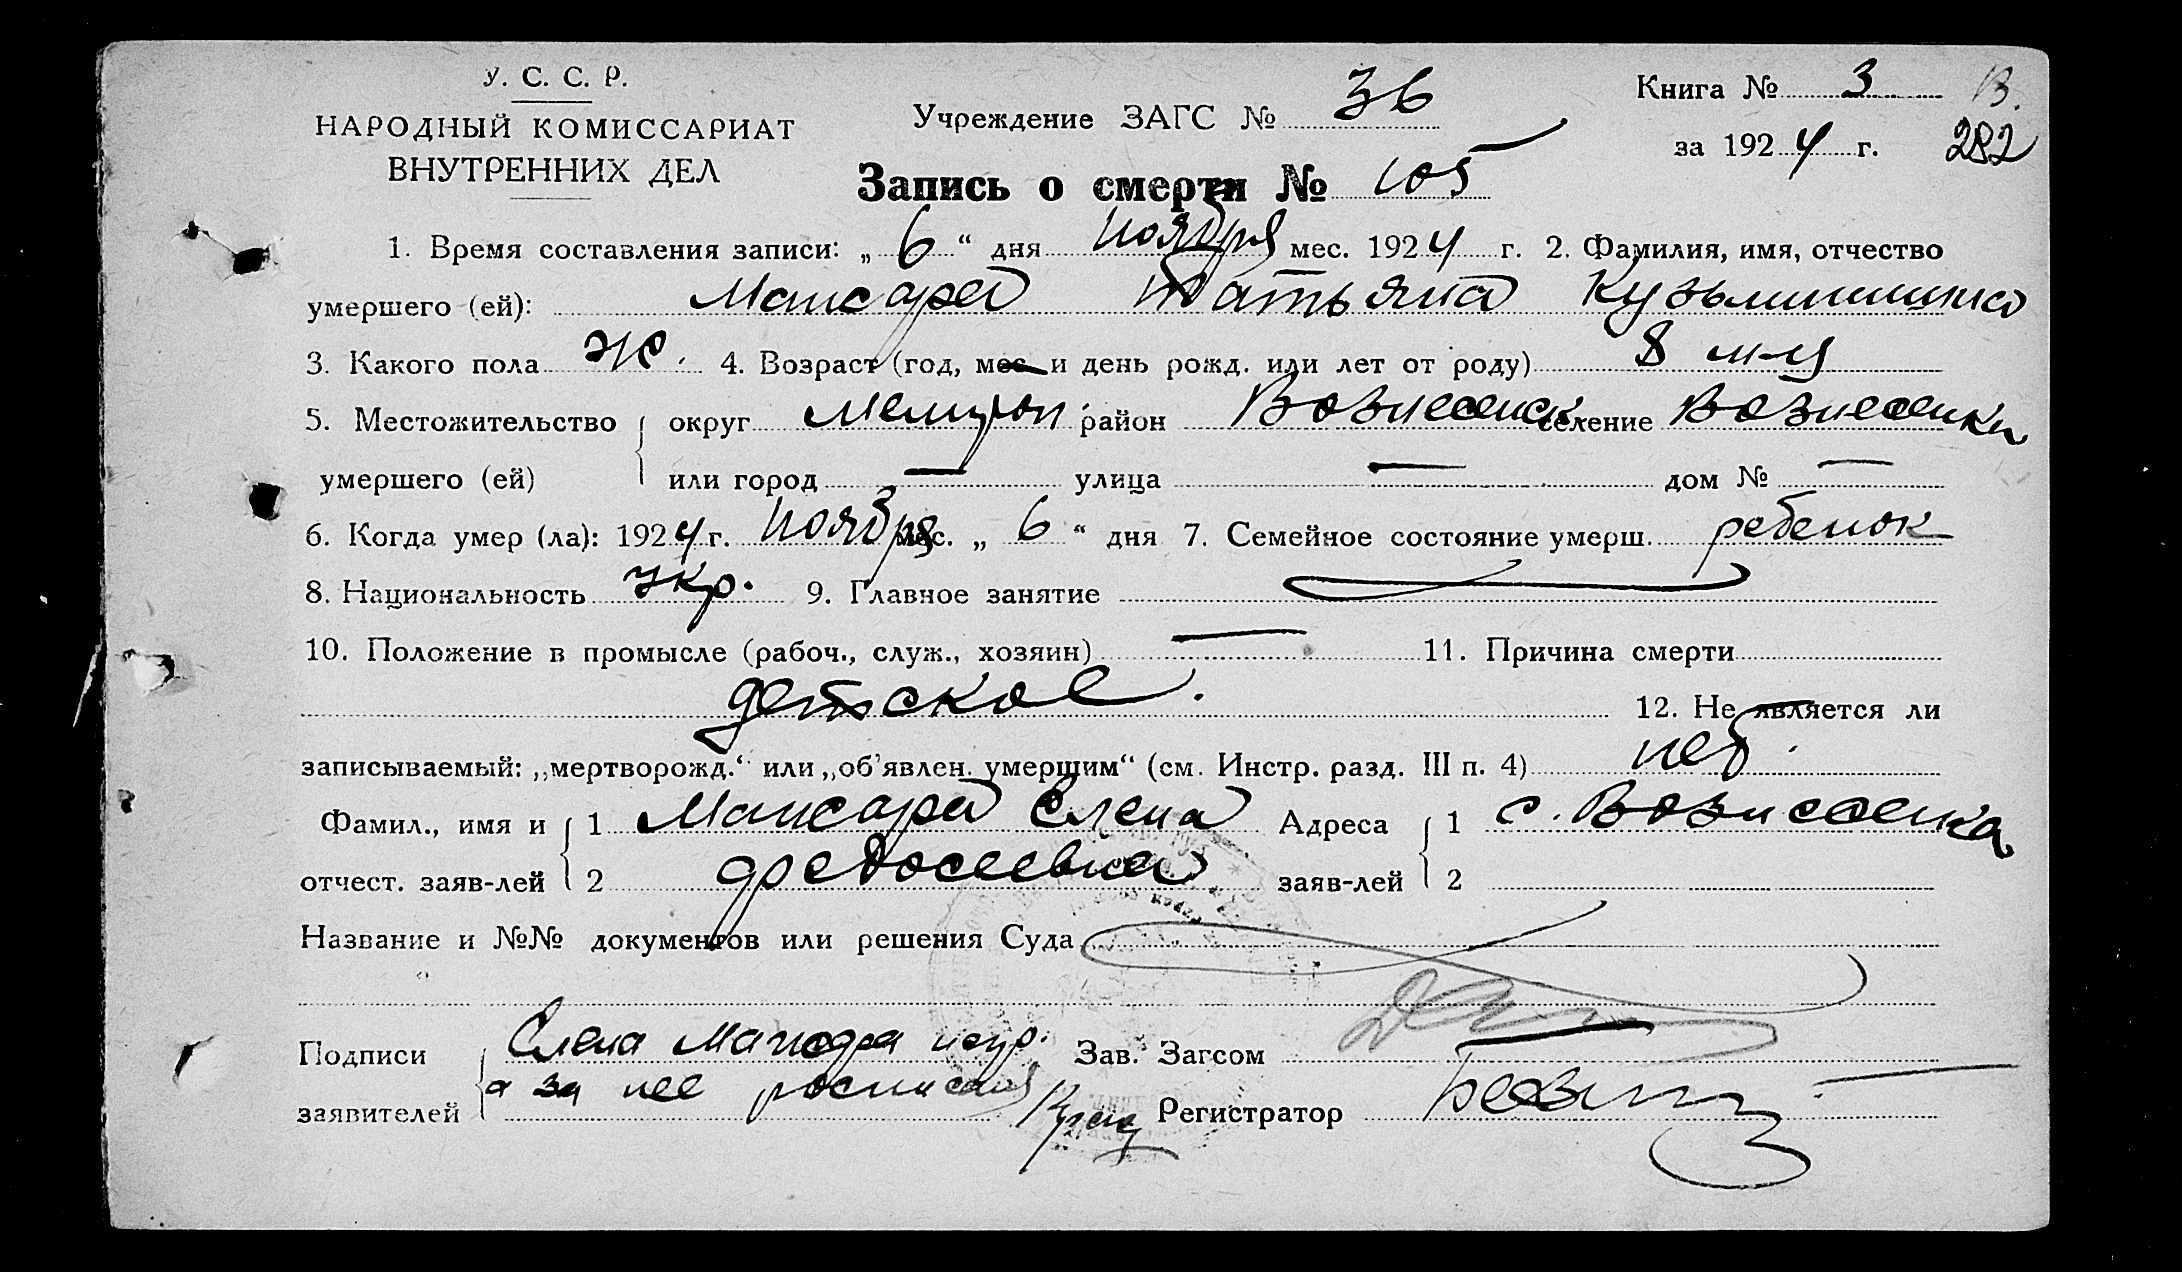 У. С. С. Р.
НАРОДНЫЙ КОМИССАРИАТ
ВНУТРЕННИХ ДЕЛ
Учреждение ЗАГС № 36
Книга № 3
за 1924 г. 282
Запись о смерти № 105
1. Время составления записи: „ 6 “ дня ноября мес. 1924 г. 2. Фамилия, имя, отчество
умершего (ей): Мансара Татьяна Кузьминишна
3. Какого пола Ж. 4. Возраст (год, мес. и день рожд. или лет от роду) 8 м-ц
5. Местожительство округ Мелитоп. район Вознесенск селение Вознесенки
умершего (ей) или город — улица — дом № —
6. Когда умер (ла): 1924 г. ноября мес. „ 6 “ дня 7. Семейное состояние умерш. ребенок
8. Национальность укр. 9. Главное занятие
10. Положение в промысле (рабоч., служ., хозяин) — 11. Причина смерти
детское. 12. Не является ли
записываемый: „мертворожд.“ или „об’явлен. умершим“ (см. Инстр. разд. III п. 4) нет.
Фамил., имя и 1 Мансара Елена Адреса 1 с. Вознесенка
отчест. заяв-лей 2 Федосеевна заяв-лей 2
Название и №№ документов или решения Суда
Подписи Елена Мансара негр. Зав. Загсом
а за нее
заявителей Регистратор